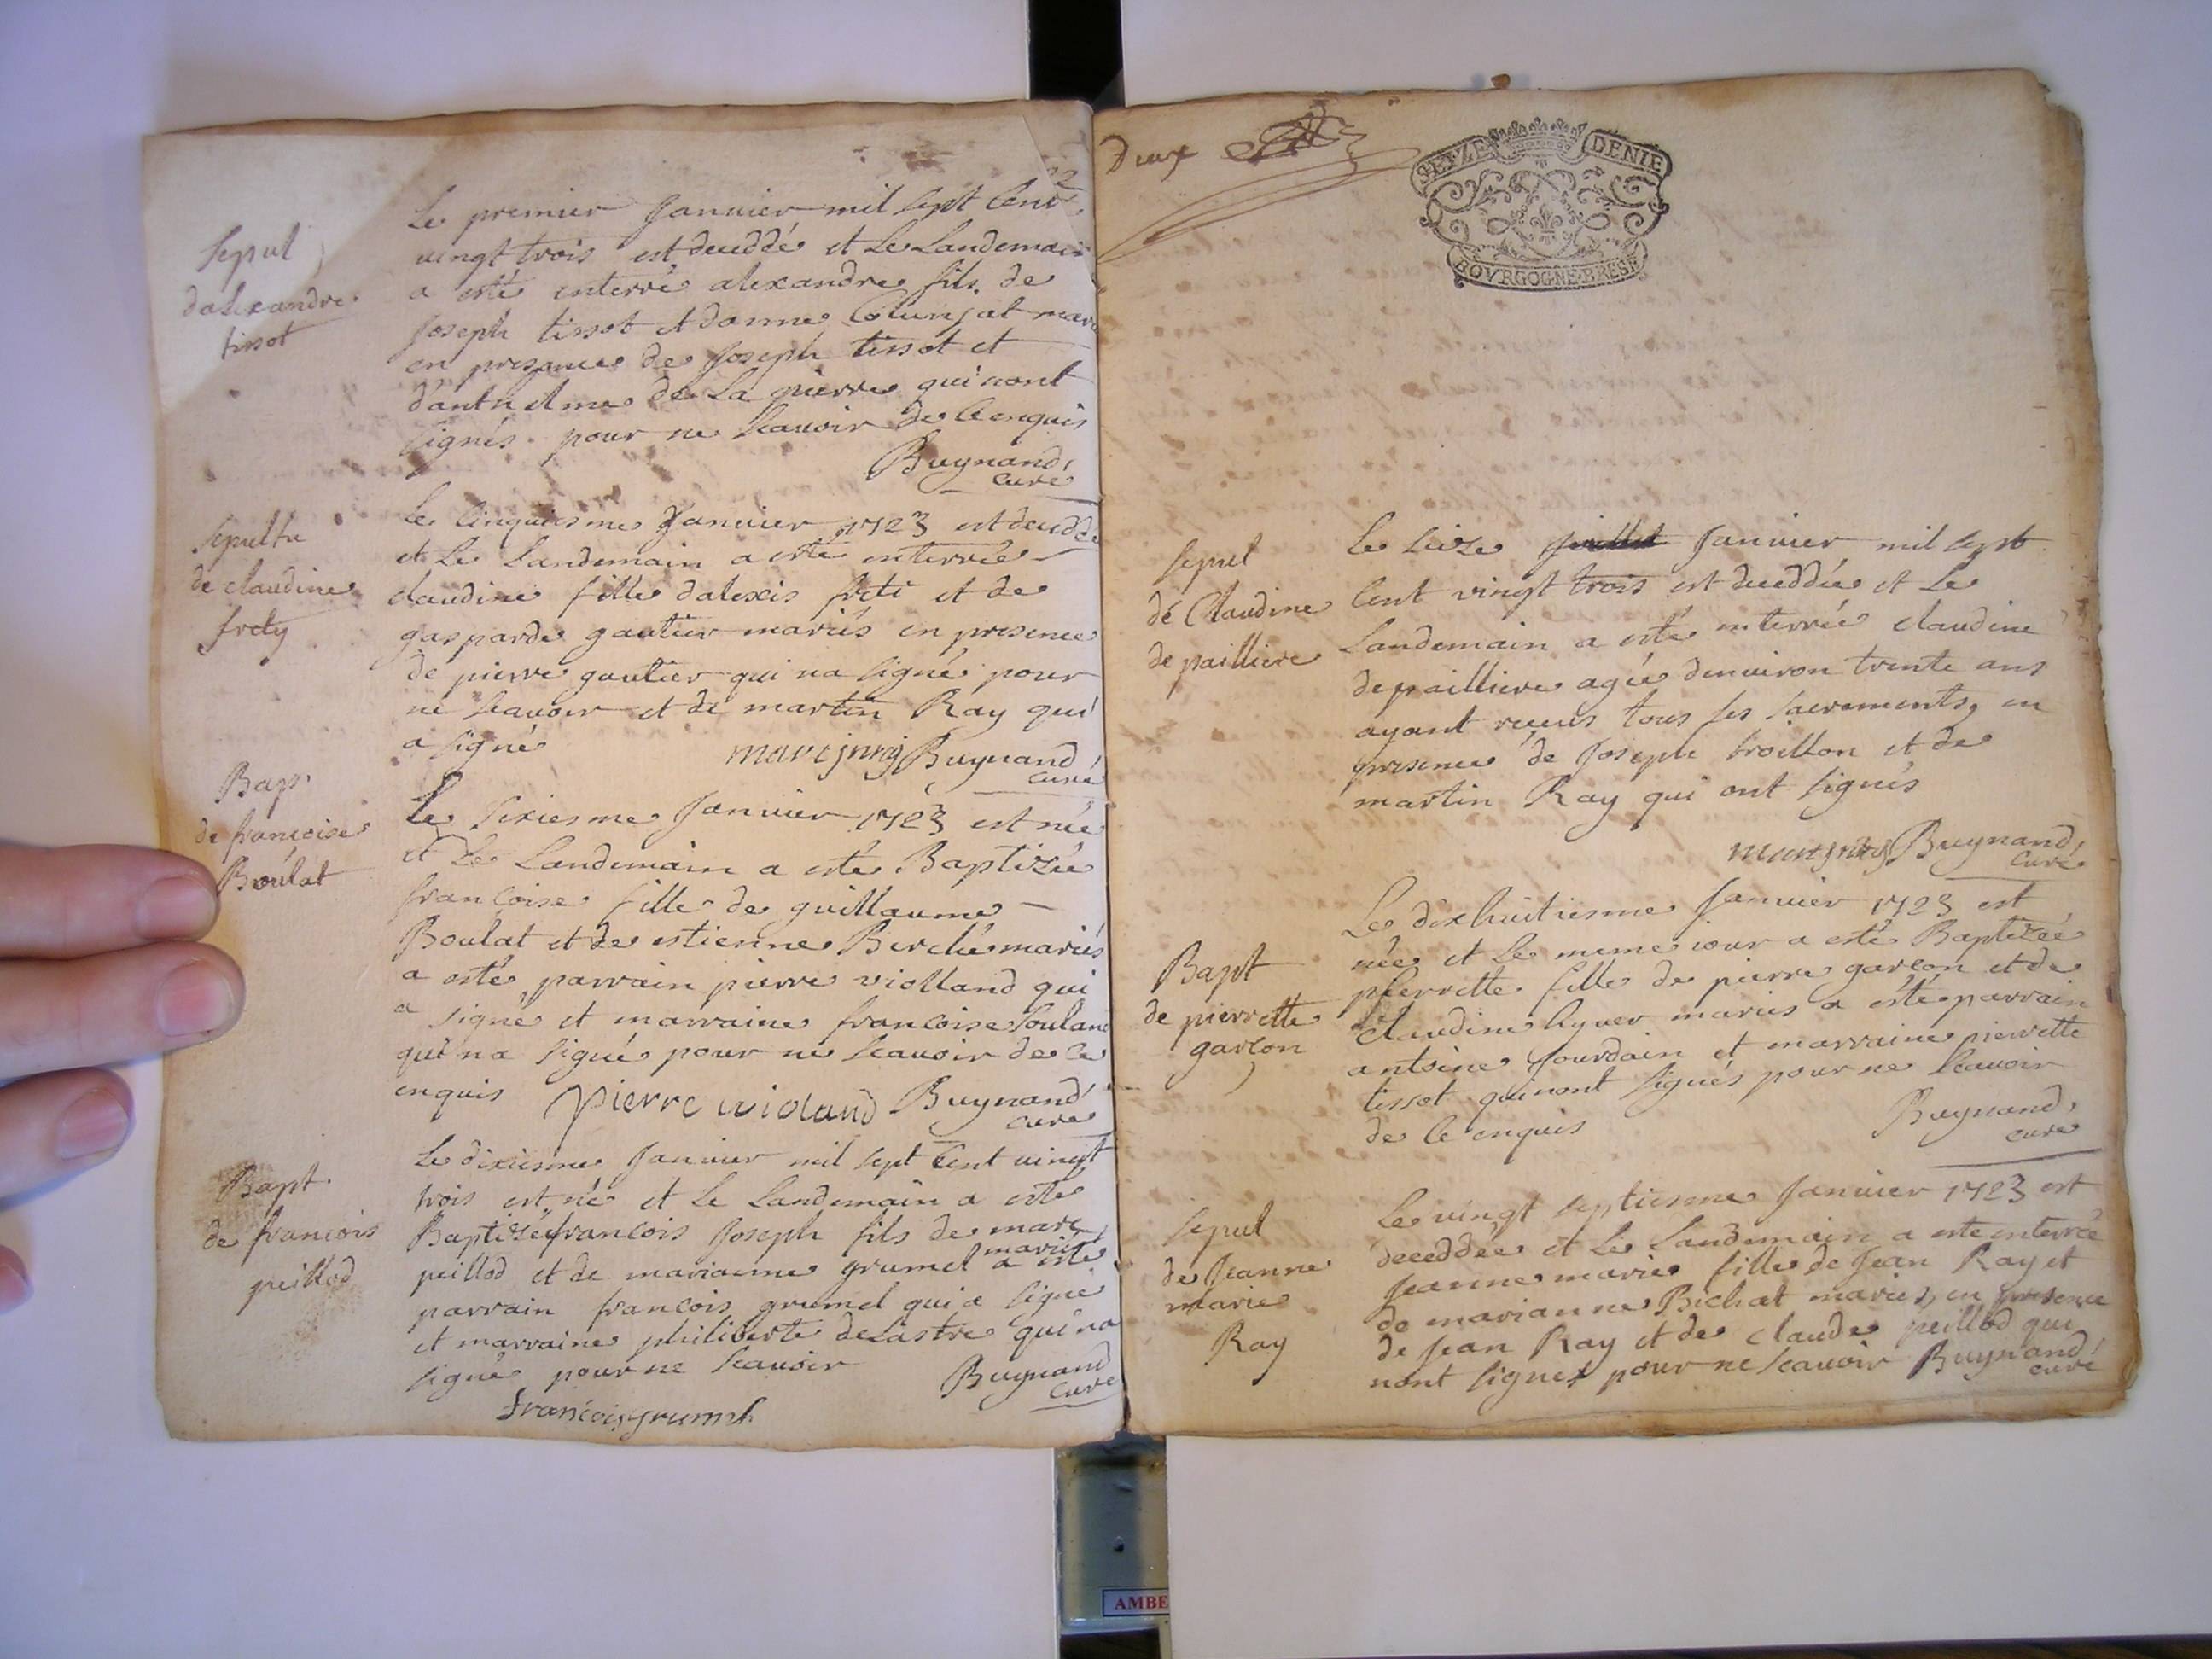 Sepul
dalexandre
tissot
Le premier Janvier mil sept Cent
vingt trois est deceddé et Le Landemain
a esté enterré alexandre fils de
Joseph tissot et danne
en presance de Joseph tissot et
danthelme de La pierre qui nont
signés pour ne scavoir de Ce enquis
Buynand
curé
Sepultu
de claudine
frety
Le Cinquiesme Janvier 1723 est deceddé
et Le Landemain a esté enterrée
claudine fille dalexis freti et de
gasparde gautier mariés en presence
de pierre gautier qui na signé pour
ne scavoir et de martin Ray qui
a signé
Buynand
curé
Bap
de francoise
Boulat
Le Sixiesme Janvier 1723 est née
et Le Landemain a esté Baptizée
francoise fille de guillaume
Boulat et de estienne Berclié mariés
a esté parrain pierre violland qui
a signé et marraine francoise
qui na signé pour ne scavoir de ce
enquis
pierre violand Buynand
curé
Bapt
de francois
peillod
Le dixiesme Janvier mil sept Cent vingt
trois est né et Le Landemain a esté
Baptizé francois Joseph fils de marc
peillod et de marianne grumel mariés a esté
parrain francois grumel qui a signé
et marraine philiberte delastre qui na
signé pour ne scavoir
Buynand
Curé
francois grumel
Deux
SEIZE DENIE
BOVRGOGNE BRESE
Sepul
de Claudine
de pailliere
Le seize juillet Janvier mil sept
Cent vingt trois est deceddée et Le
Landemain a esté enterrée claudine
depailliere agée denviron trente ans
ayant receus tous ses sacrements, en
presence de Joseph troillon et de
martin Ray qui ont signés
Buynand
Curé
Bapt
de pierrette
garcon
Le dixhuitiesme Janvier 1723 est
née et Le meme iour a esté Baptizée
pierrette fille de pierre garcon et de
claudine hyver mariés a esté parrain
antoine Jourdain et marraine pierrette
tissot qui nont signés pour ne scavoir
de Ce enquis
Buynand
curé
Sepul
de Jeanne
marie
Ray
Le vingt septiesme Janvier 1723 est
deceddée et Le Landemain a esté enterrée
Jeanne marie fille de Jean Ray et
de marianne Bichat mariés, en presence
de Jean Ray et de claude peillod qui
nont signés pour ne scavoir Buynand
curé
AMBE